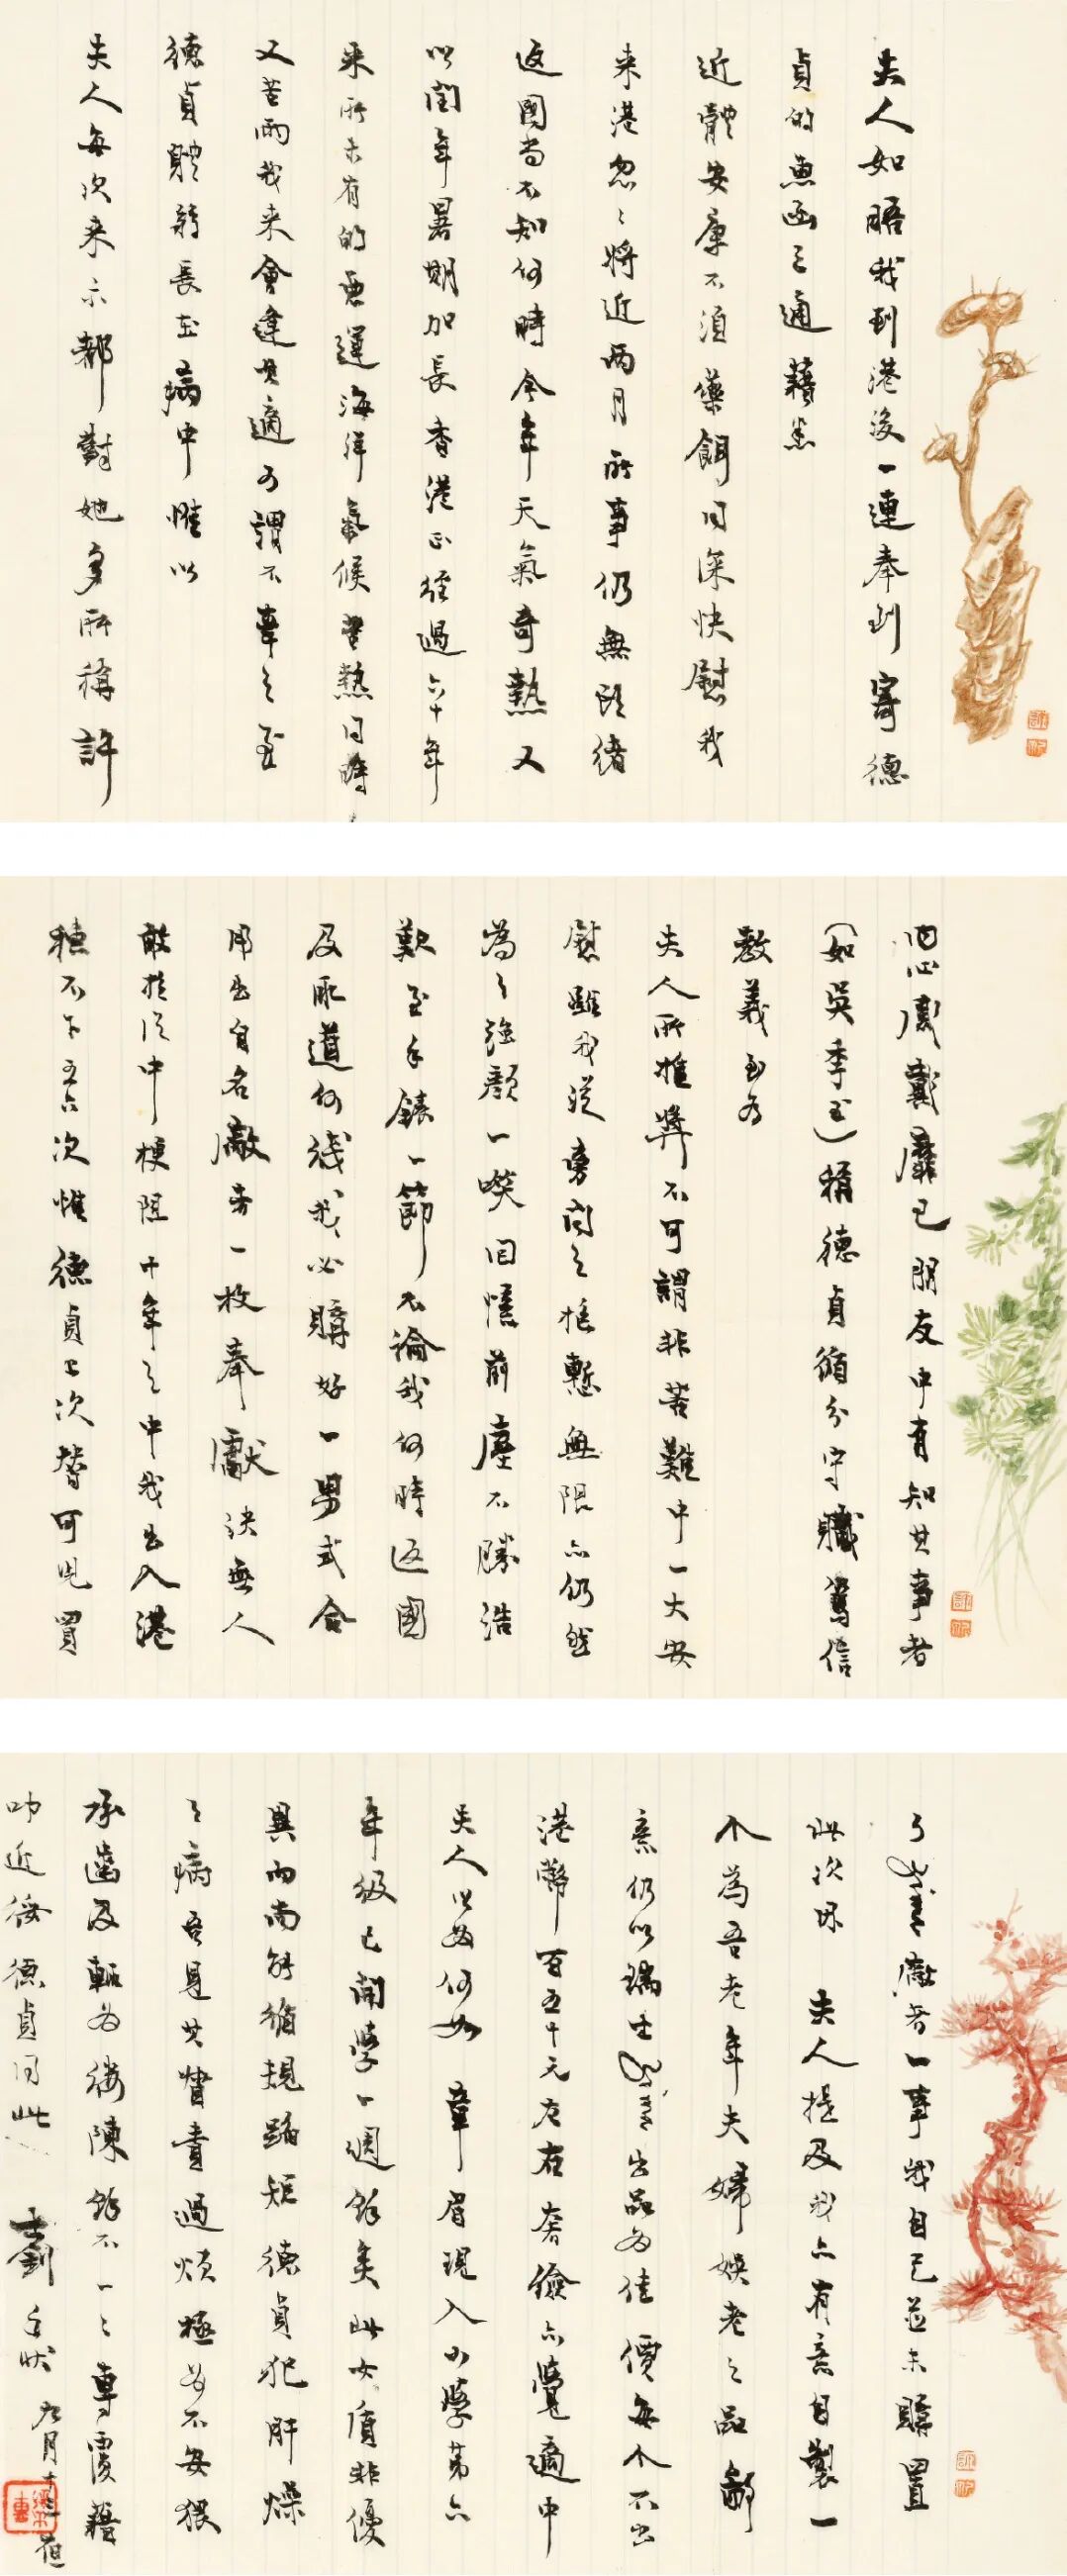 夫人如晤我到港後一連奉到寄德
貞的惠函三通藉悉
近體安康不須藥餌同深快慰我
來港忽忽將近兩月所事仍無頭緒
返國尚不知何時今年天氣奇熱又
以閏年暑期加長香港正經過六十年
來所未有的惡運海洋氣候苦熱同時
又苦雨我來會逢其適可謂不幸之至
德貞體弱長在病中惟以
夫人每次來示都對她多所稱許
內心感戴靡已朋友中有知其事者
（如吳季玉）稱德貞循分守職篤信
教義至為
夫人所推獎不可謂非苦難中一大安
慰雖我從旁聞之慚無限亦仍然
為之強顏一笑回憶前塵不勝浩
歎至手錶一節不論我何時返國
及取道何綫我必購好一男式合
用出自名廠者一枚奉獻決無人
敢於從中梗阻十年之中我出入港
穗不下五六次惟德貞上次替可兒買
了 廠者一事我自己並未購置
此次旣 夫人提及我亦有意自製一
个為吾老年夫婦娛老之品鄙
意仍以瑞士 出品為佳價每个不出
港幣百五十元左右奢儉亦覺適中
夫人以為何如 章眉現入小學第六
年級已開學一週餘矣此女質非優
異而尚能循規蹈矩德貞犯肝燥
之病吾見其督責過煩極為不安猥
承齒及輒為縷陳餘不一一專覆藉
叩近綏德貞同此 士釗手狀 九月十 夜